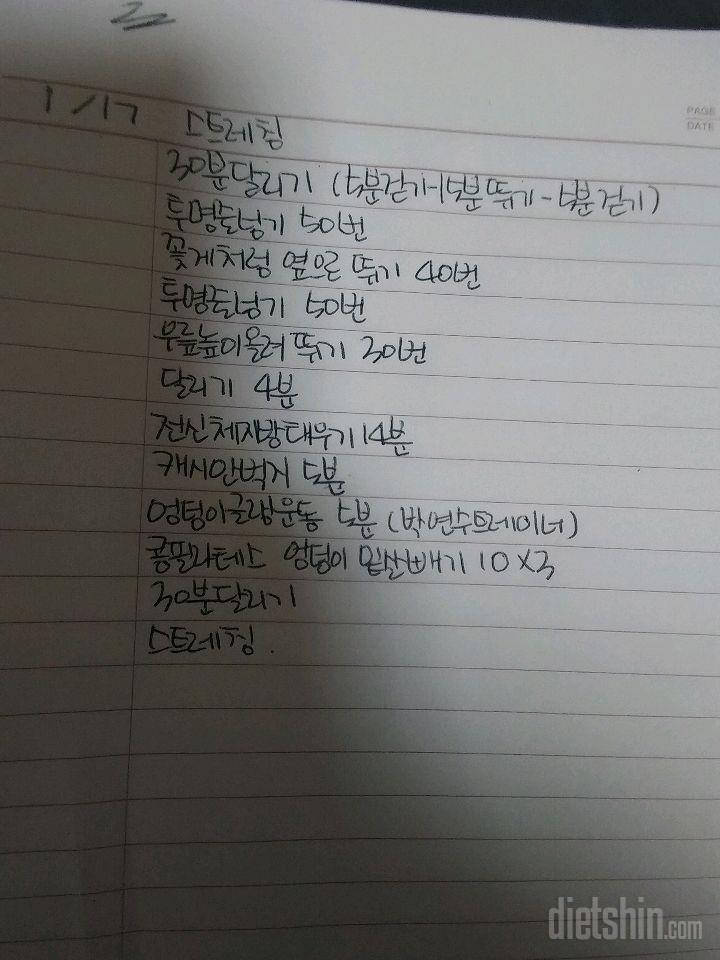 PAGE
DATE
1/17 스트레칭
30분달리기 (5분걷기-15분뛰기-5분걷기)
투명줄넘기 50번
꽃게처럼 옆으로 뛰기 40번
투명줄넘기 50번
무릎높이올려 뛰기 30번
달리기 4분
전신체지방태우기 14분
캐시안벅지 5분
엉덩이글램운동 5분 (박연수트레이너)
콩필라테스 엉덩이 밑살빼기 10X3
30분달리기
스트레칭.
dietshin.com